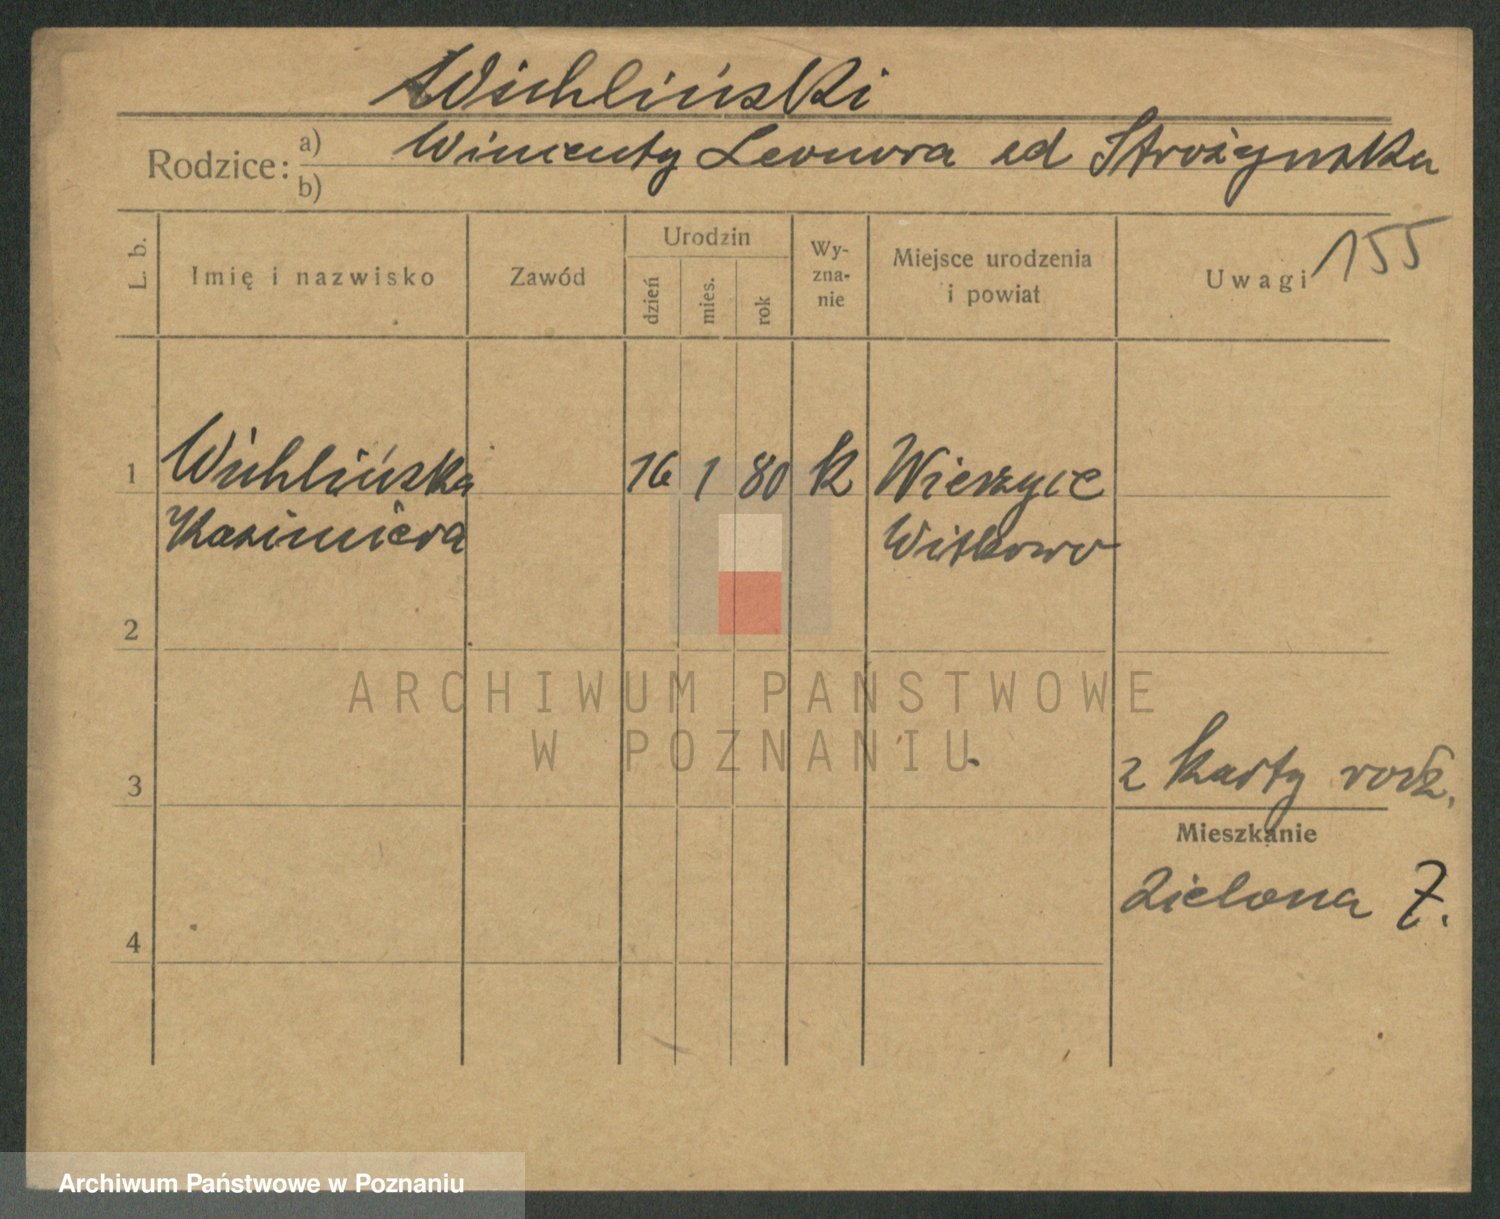 Wichliński
Rodzice: a) Wincenty Leonora ed Strożynska
b)
L. b. Imię i nazwisko Zawód Urodzin dzień mies. rok Wy-zna-nie Miejsce urodzenia i powiat Uwagi 155
1 Wichlińska 16 1 80 k Wierzyce
Kazimiera Witkowo
2
ARCHIWUM PAŃSTWOWE
W POZNANIU
3 z karty rodz.
Mieszkanie
Zielona 7.
4
Archiwum Państwowe w Poznaniu